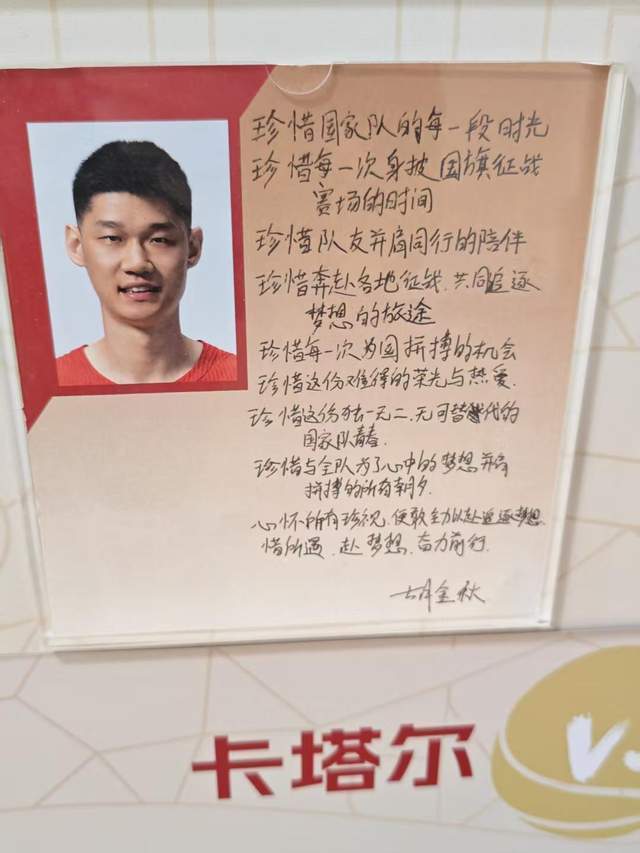 珍惜国家队的每一段时光
珍惜每一次身披国旗征战
赛场的时间
珍惜队友并肩同行的陪伴
珍惜奔赴各地征战、共同追逐
梦想的旅途
珍惜每一次为国拼搏的机会
珍惜这份难得的荣光与热爱.
珍惜这份独一无二、无可替代的
国家队青春.
珍惜与全队为了心中的梦想并肩
拼搏的所有朝夕.
心怀所有珍视,便敢全力以赴追逐梦想
惜所遇、赴梦想、奋力前行.
胡金秋
卡塔尔
VS